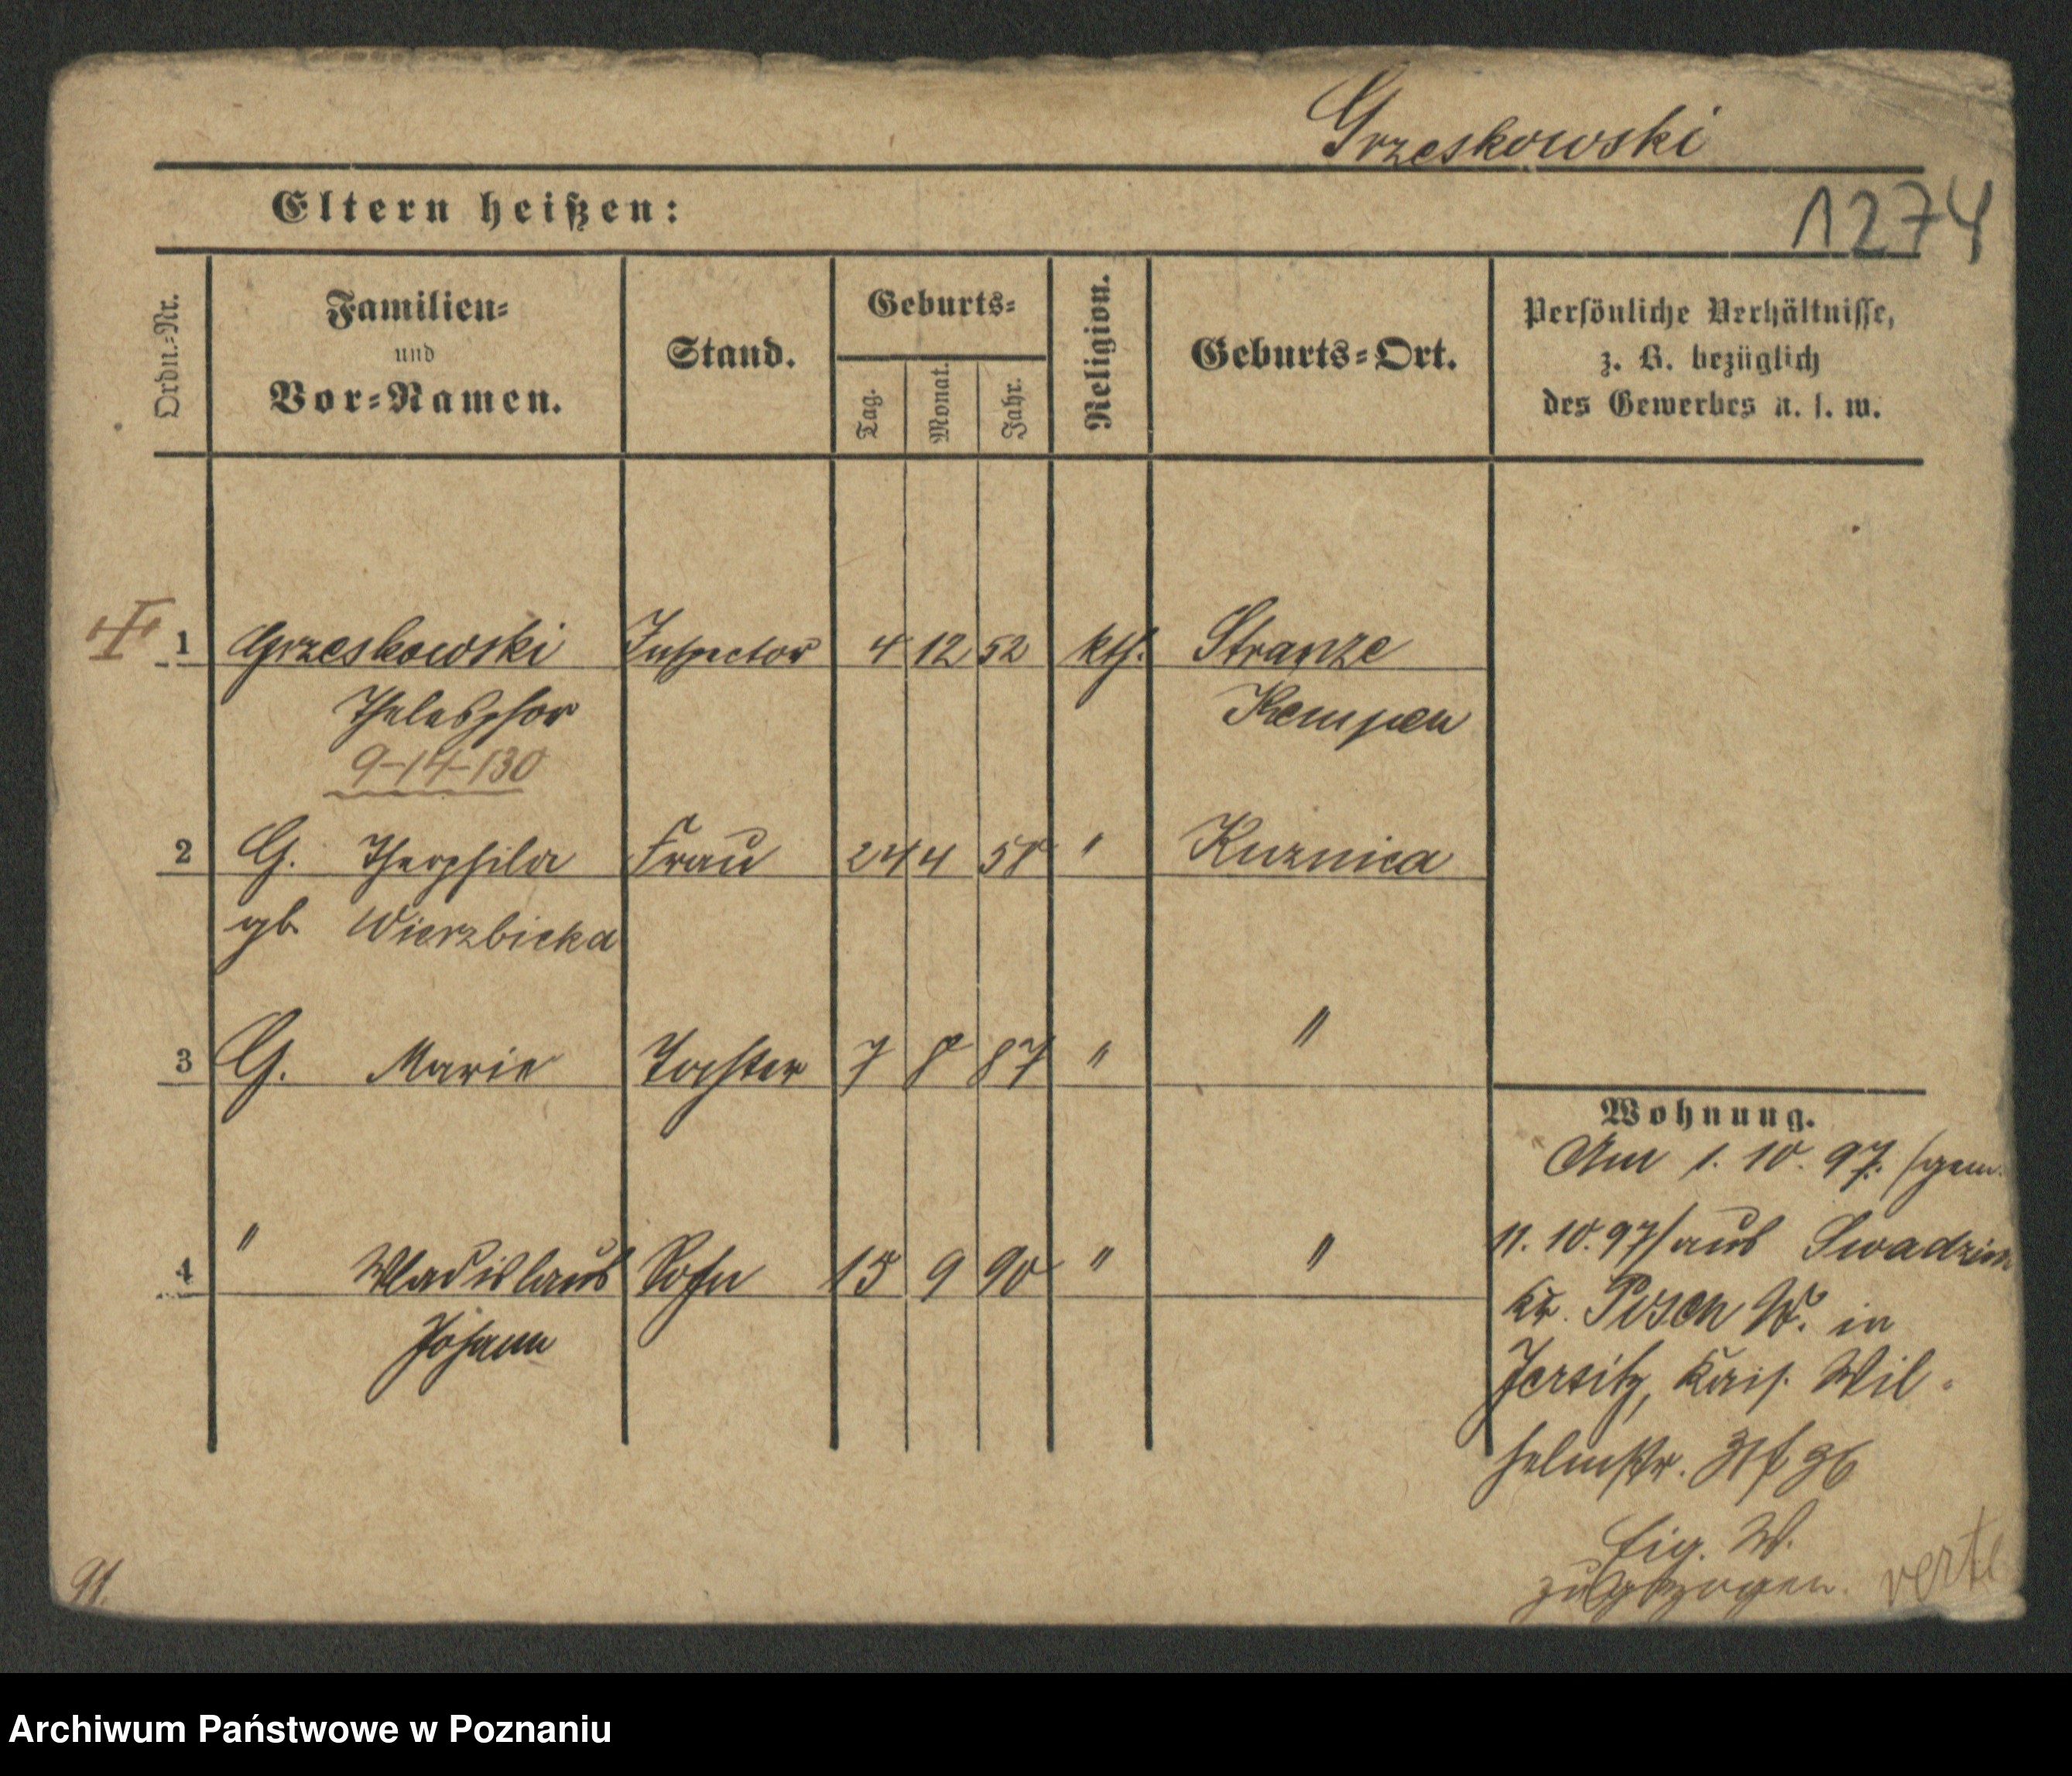 Grzeskowski
1274
Eltern heißen:
Ordn.-Nr.
Familien-
und
Vor-Namen.
Stand.
Geburts-
Tag.
Monat.
Jahr.
Religion.
Geburts-Ort.
Persönliche Verhältnisse,
z. B. bezüglich
des Gewerbes u. s. w.
1 Grzeskowski Inspector 4 12 52 kth. Stranze
Thelesphor Kempen
9-14-130
2 G. Theophila Frau 24 4 58 " Kuznica
gb Wierzbicka
3 G. Marie Tochter 7 8 87 " "
4 " Wladislaus Sohn 15 9 90 " "
Johann
Wohnung.
Am 1. 10. 97. /gem.
11. 10. 97/ aus Swadzim
Kr. Posen W. in
Jersitz, Kais. Wil-
helmstr.
Eig. W.
zugezogen. verte
Archiwum Państwowe w Poznaniu